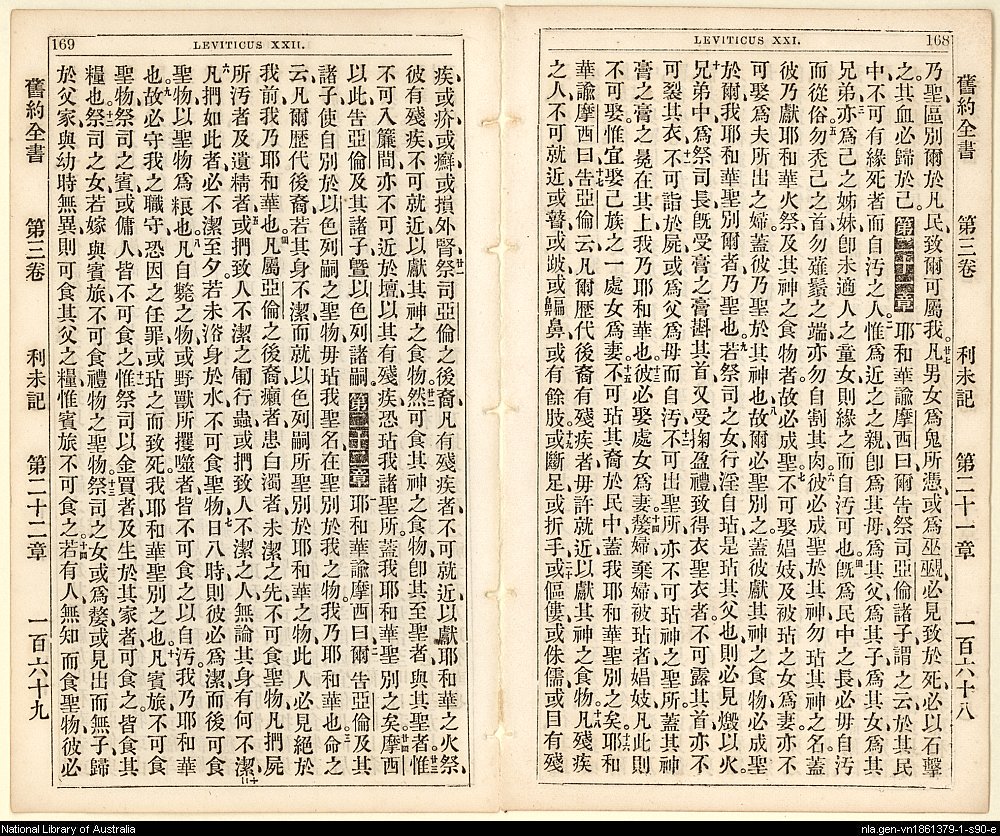 LEVITICUS XXI. 168
舊約全書 第三卷 利未記 第二十一章 一百六十八
乃聖、區別爾於凡民、致爾可屬我。廿七凡男女爲鬼所憑、或爲巫覡、必見致於死、必以石擊
之、其血必歸於己。第二十一章 一耶和華諭摩西曰、爾告祭司亞倫諸子、謂之云、於其民
中不可有緣死者而自汚之人、二惟爲近之之親、卽爲其母、爲其父、爲其子、爲其女、爲其
兄弟、三亦爲己之姊妹、卽未適人之童女、則緣之而自汚可也。四旣爲民中之長、必毋自汚
而從俗。五勿禿己之首、勿薙鬚之端、亦勿自割其肉。六彼必成聖於其神、勿玷其神之名、蓋
彼乃獻耶和華火祭、及其神之食物者、故必成聖。七不可娶娼妓、及被玷之女爲妻、亦不
可娶爲夫所出之婦、蓋彼乃聖於其神也。八故爾必聖別之、蓋彼獻其神之食物、必成聖
於爾、我耶和華聖別爾者、乃聖也。九若祭司之女、行淫自玷、是玷其父也、則必見燬以火。
十兄弟中爲祭司長、旣受膏之膏斟其首、又受掬盈禮、致得衣聖衣者、不可露其首、亦不
可裂其衣、十一不可詣於屍、或爲父爲母而自汚、十二不可出聖所、亦不可玷神之聖所、蓋其神
膏之膏之冕在其上、我乃耶和華也。十三彼必娶處女爲妻。十四嫠婦、棄婦、被玷者、娼妓、凡此則
不可娶、惟宜娶己族之一處女爲妻。十五不可玷其裔於民中、蓋我耶和華聖別之矣。十六耶和
華諭摩西曰、十七告亞倫云、凡爾歷代後裔、有殘疾者、毋許就近以獻其神之食物。十八凡殘疾
之人不可就近、或瞽、或跛、或騸鼻、或有餘肢、十九或斷足、或折手、二十或傴僂、或侏儒、或目有殘
169 LEVITICUS XXII.
疾、或疥、或癬、或損外腎、廿一祭司亞倫之後裔、凡有殘疾者、不可就近以獻耶和華之火祭、
彼有殘疾、不可就近以獻其神之食物。廿二然可食其神之食物、卽其至聖者、與其聖者、廿三惟
不可入簾間、亦不可近於壇、以其有殘疾、恐玷我諸聖所、蓋我耶和華聖別之矣。廿四摩西
以此告亞倫及其諸子、曁以色列諸嗣。第二十二章 一耶和華諭摩西曰、二爾告亞倫及其
諸子、使自別於以色列嗣之聖物、毋玷我聖名、在聖別於我之物、我乃耶和華也。三命之
云、凡爾歷代後裔、若其身不潔、而就以色列嗣所聖別於耶和華之物、此人必見絕於
我前、我乃耶和華也。四凡屬亞倫之後裔、癩者、患白濁者、未潔之先、不可食聖物、凡捫屍
所汚者、及遺精者、五或捫致人不潔之匍行蟲、或捫致人不潔之人、無論其身有何不潔、
六凡捫如此者、必不潔至夕、若未浴身於水、不可食聖物、七日入時、則彼必爲潔、而後可食
聖物、以聖物爲粻也。八凡自斃之物、或野獸所攫噬者、皆不可食之以自汚、我乃耶和華
也。九故必守我之職守、恐因之任罪、或玷之而致死、我耶和華聖別之也。十凡賓旅不可食
聖物、祭司之賓、或傭人、皆不可食之、十一惟祭司以金買者、及生於其家者、可食之、皆食其
糧也。十二祭司之女、若嫁與賓旅、不可食禮物之聖物。十三祭司之女、或爲嫠、或見出而無子、歸
於父家、與幼時無異、則可食其父之糧、惟賓旅不可食之。十四若有人無知而食聖物、彼必
舊約全書 第三卷 利未記 第二十二章 一百六十九
National Library of Australia
nla.gen-vn1861379-1-s90-e